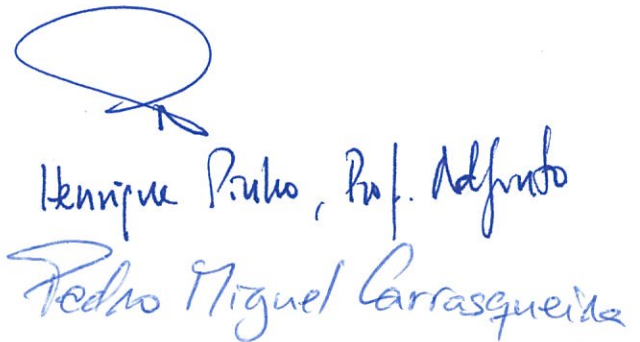 Henrique Pinho, Prof. Adjunto
Pedro Miguel Carrasqueira